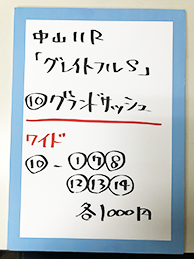 中山11R
「グレイトフルS」
⑩グランドサッシュ
ワイド
⑩-①⑦⑧
⑫⑬⑭
各1000円